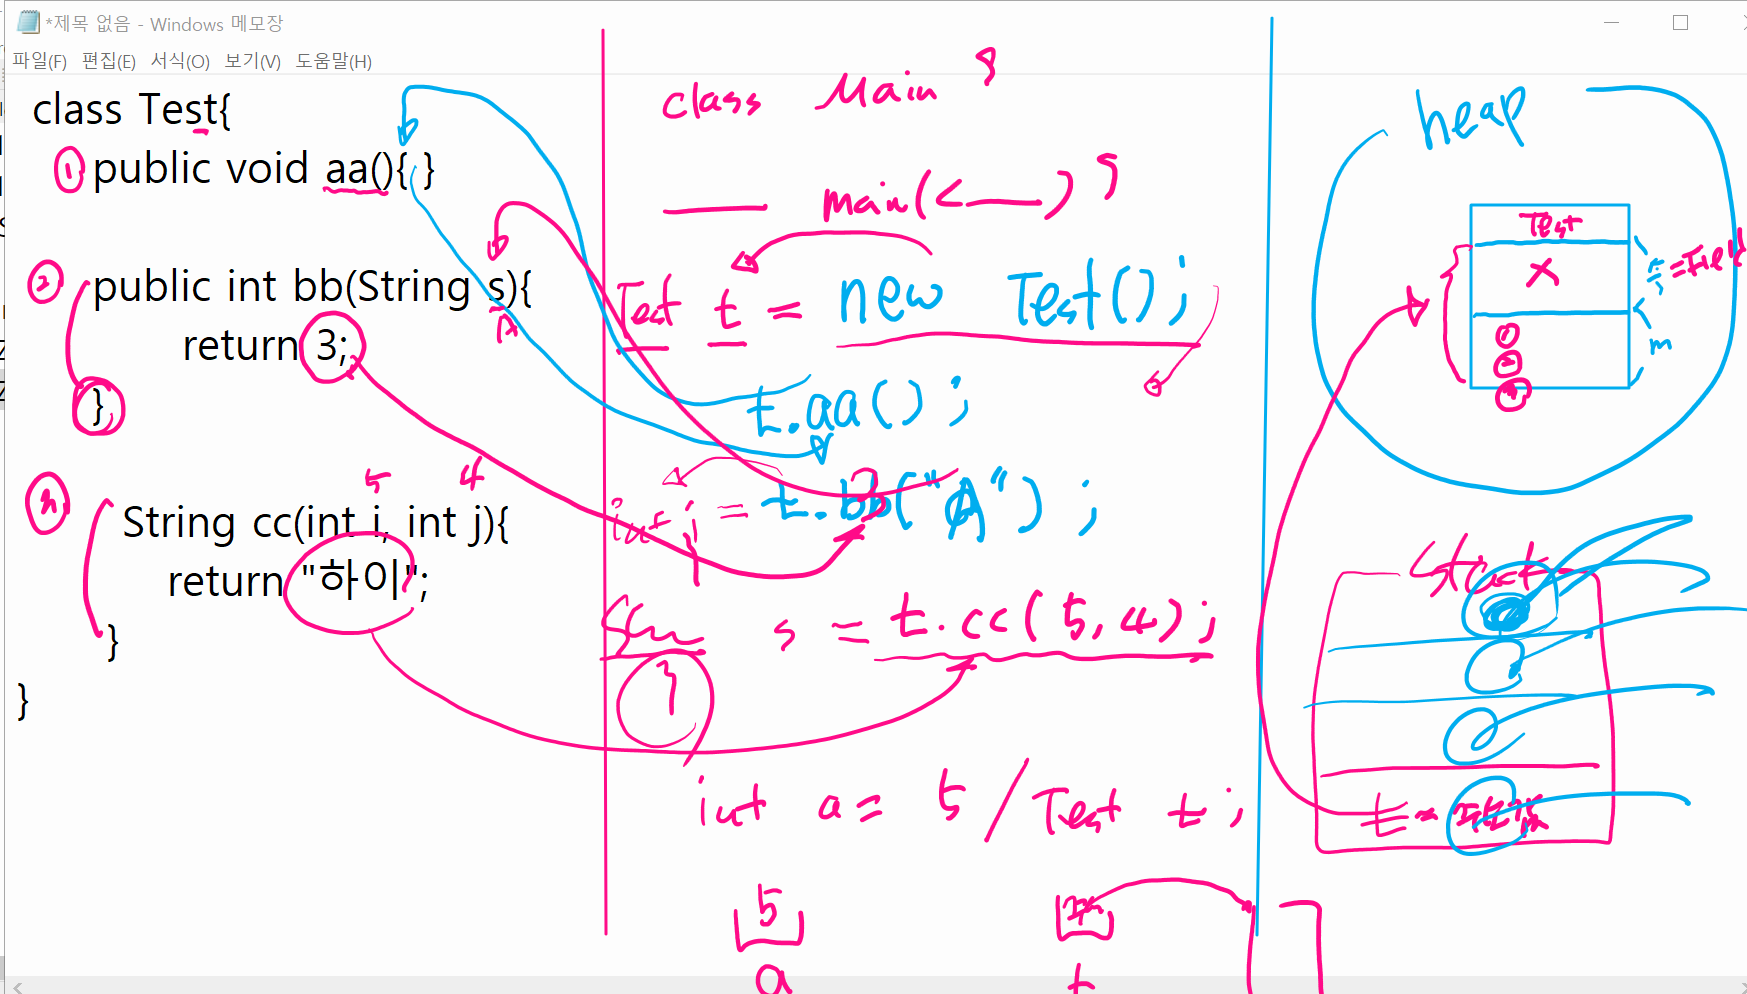 *제목 없음 - Windows 메모장
파일(F) 편집(E) 서식(O) 보기(V) 도움말(H)
class Test{
1 public void aa(){ }
2 public int bb(String s){
A
return 3;
}
5 4
String cc(int i, int j){
return "하이";
}
}
class Main {
main( ) {
Test t = new Test();
t.aa();
int j = t.bb("A");
3
s = t.cc(5,4);
int a = 5 / Test t;
5
a
t
heap
Test
X
= Field
1
2
m
stack
t =